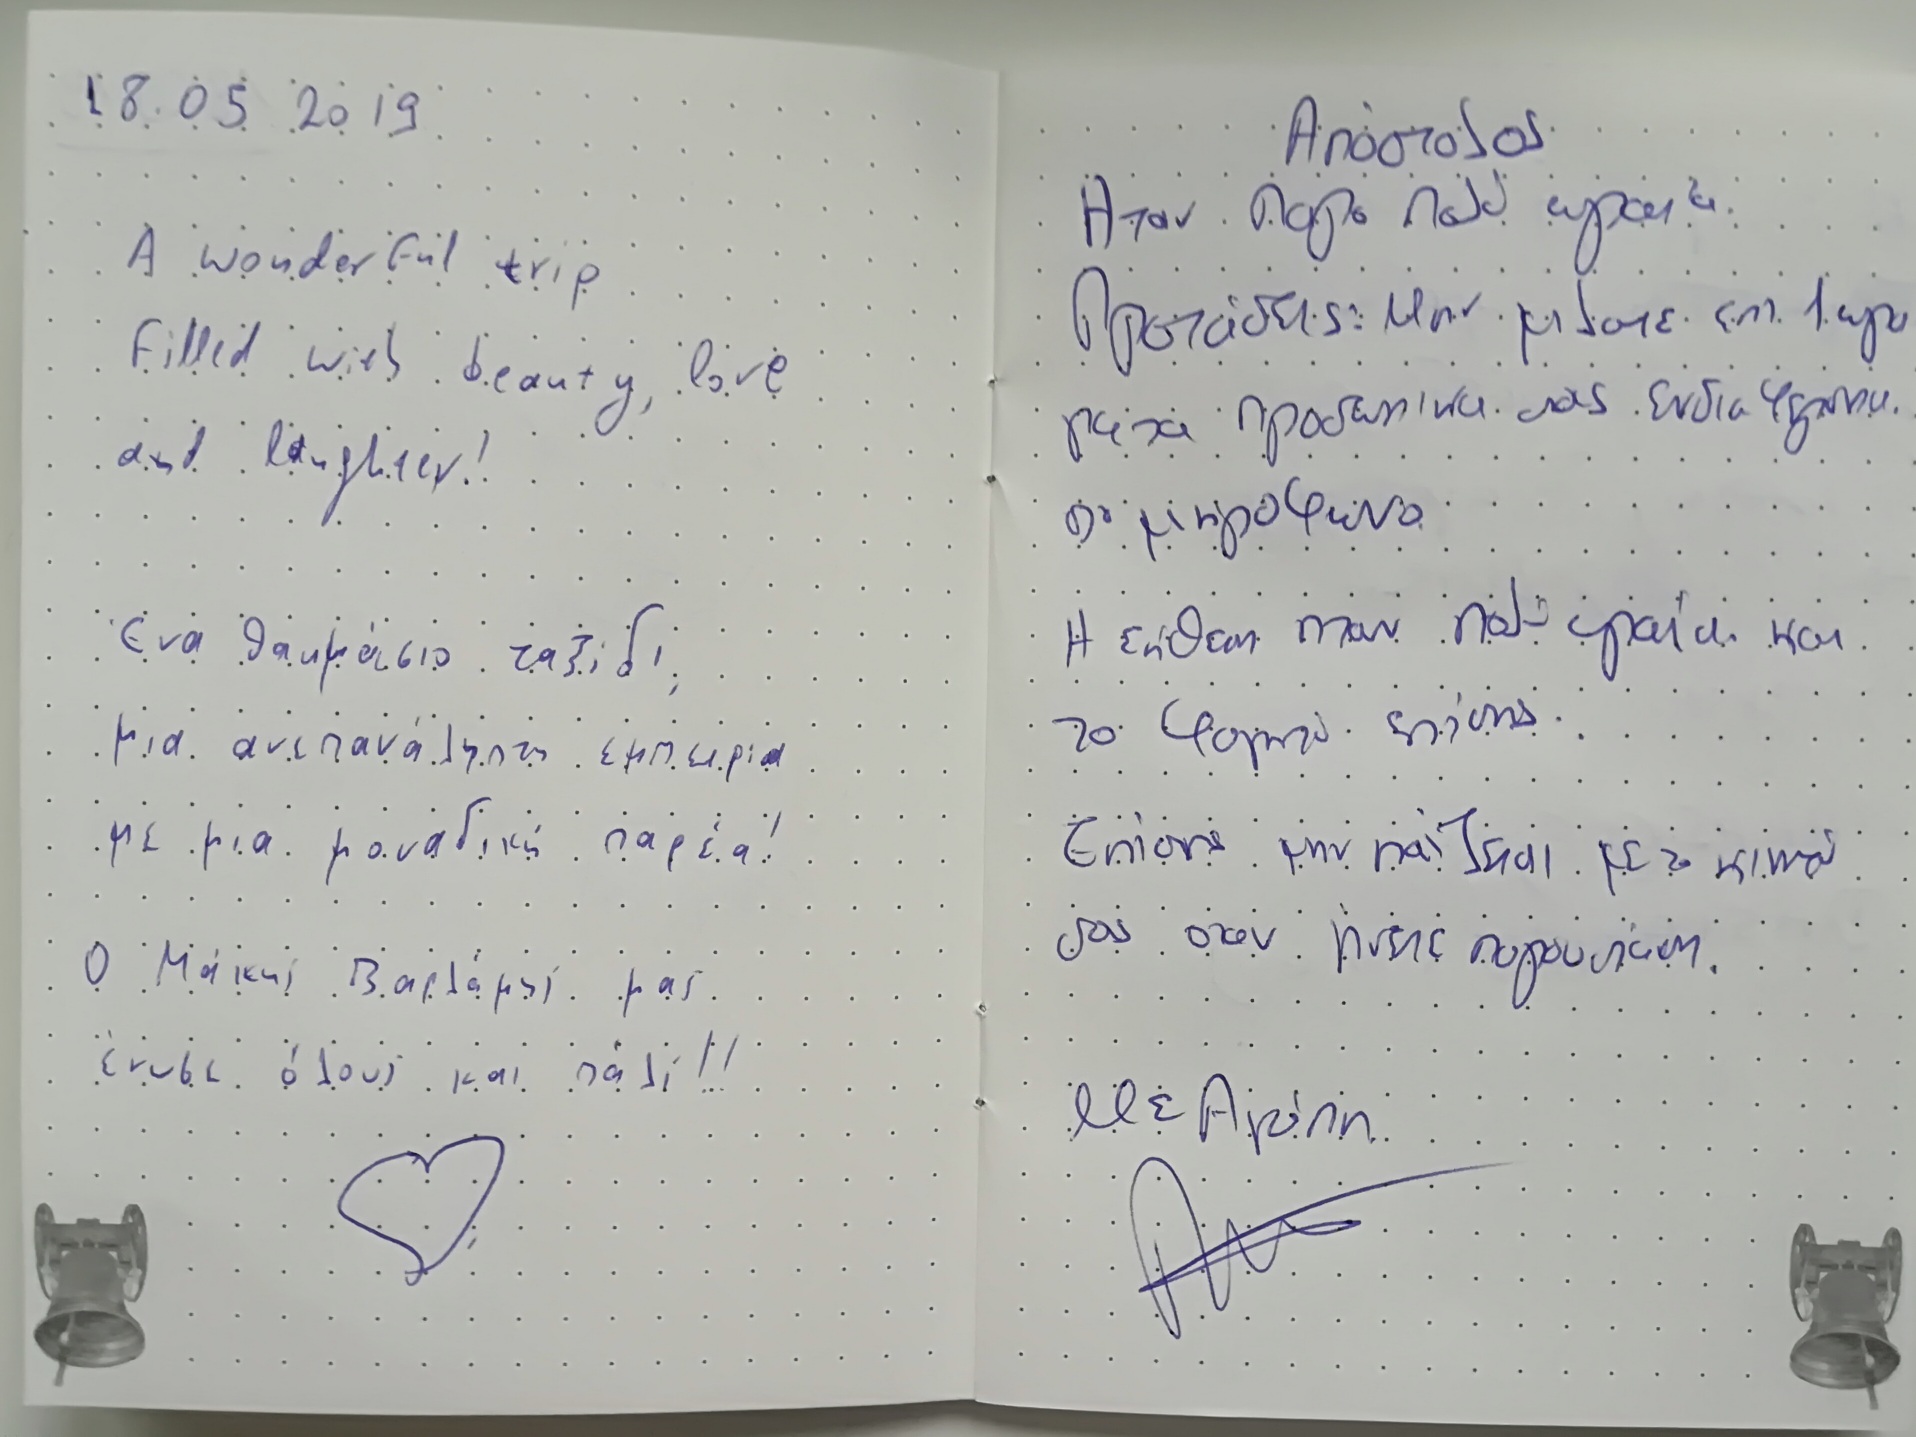 18.05 2019
A wonderful trip
filled with beauty, love
and laughter!
Ένα θαυμάσιο ταξίδι,
μια ανεπανάληπτη εμπειρία
με μια μοναδική παρέα!
Ο Μάκης Βαρλάμης μας
ένωσε όλους και πάλι!!
Απόστολος
Ηταν πολύ ωραία.
Προτάσεις: Μην μιλάτε επι 1 ωρα
για τα προσωπικα σας ενδιαφέροντα.
στο μικρόφωνο
Η έκθεση ηταν πολύ ωραία και
το φαγητό επίσης.
Επίσης μην παίζεται με το κινητό
σας οταν γίνεται παρουσίαση.
Με Αγάπη